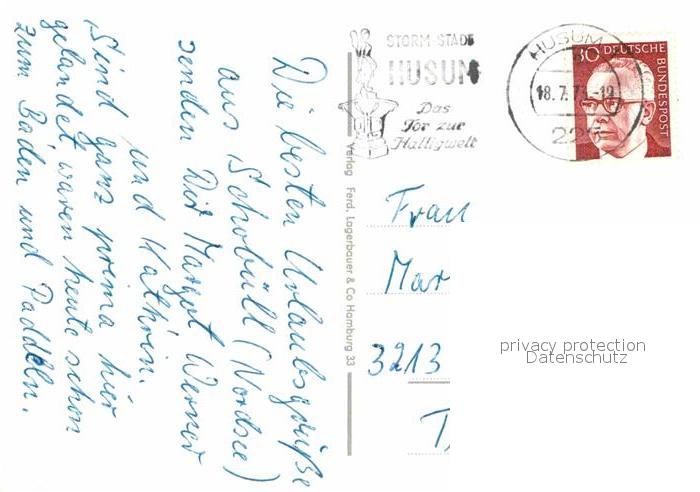 Die besten Urlaubsgrüße
aus Schobüll (Nordsee)
senden Dir Margot Werner
und Kathrin.
Sind ganz prima hier
gelandet, waren heute schon
zum Baden und Paddeln.
Verlag Ferd. Lagerbauer & Co Hamburg 33
STORM STADT
HUSUM
Das
Tor zur
Halligwelt
HUSUM
18.7.7
225
30 DEUTSCHE
BUNDESPOST
Frau
Mar
3213
privacy protection
Datenschutz